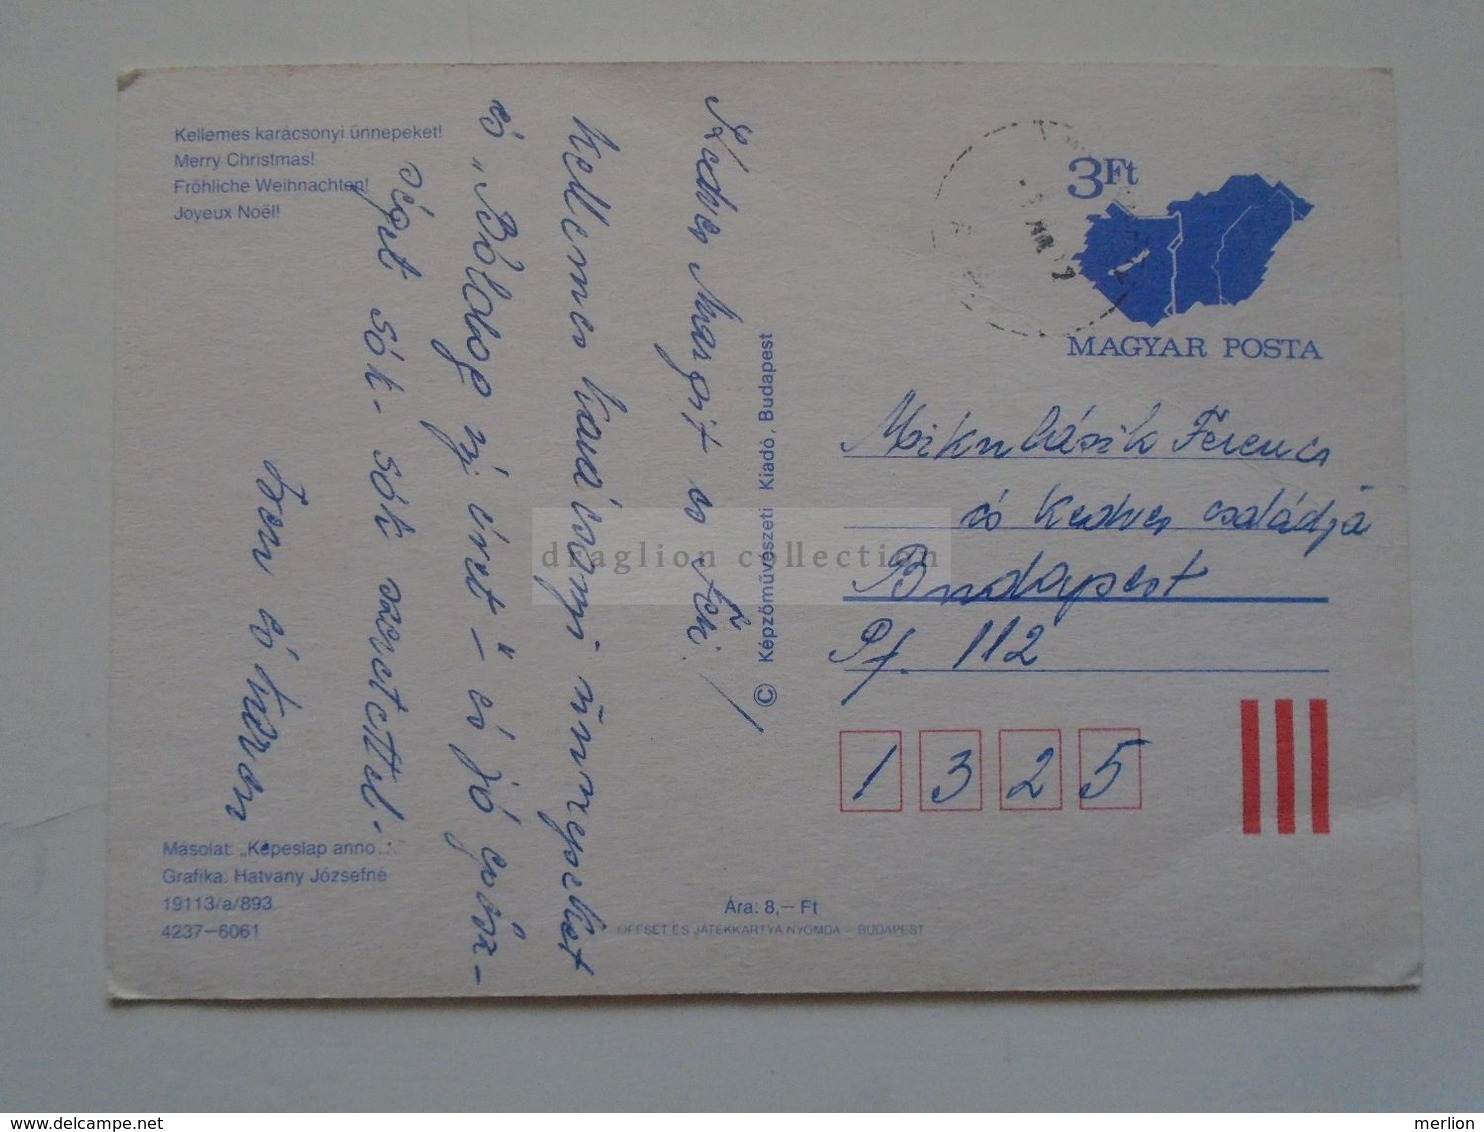 Kellemes karácsonyi ünnepeket!
Merry Christmas!
Fröhliche Weihnachten!
Joyeux Noël!
Kedves Margit és Feri!
Kellemes karácsonyi ünnepeket
és "Boldog új évet" – és jó egész-
séget sok-sok szeretettel.
és
Másolat: „Képeslap anno..."
Grafika: Hatvany Józsefné
19113/a/893.
4237–6061
© Képzőművészeti Kiadó, Budapest
Ára: 8,– Ft
OFFSET ÉS JÁTÉKKÁRTYA NYOMDA – BUDAPEST
3Ft
MAGYAR POSTA
Mikulásik Ferenc
és kedves családja
Budapest
Pf. 112
1325
draglion collection
delcampe.net
merlion